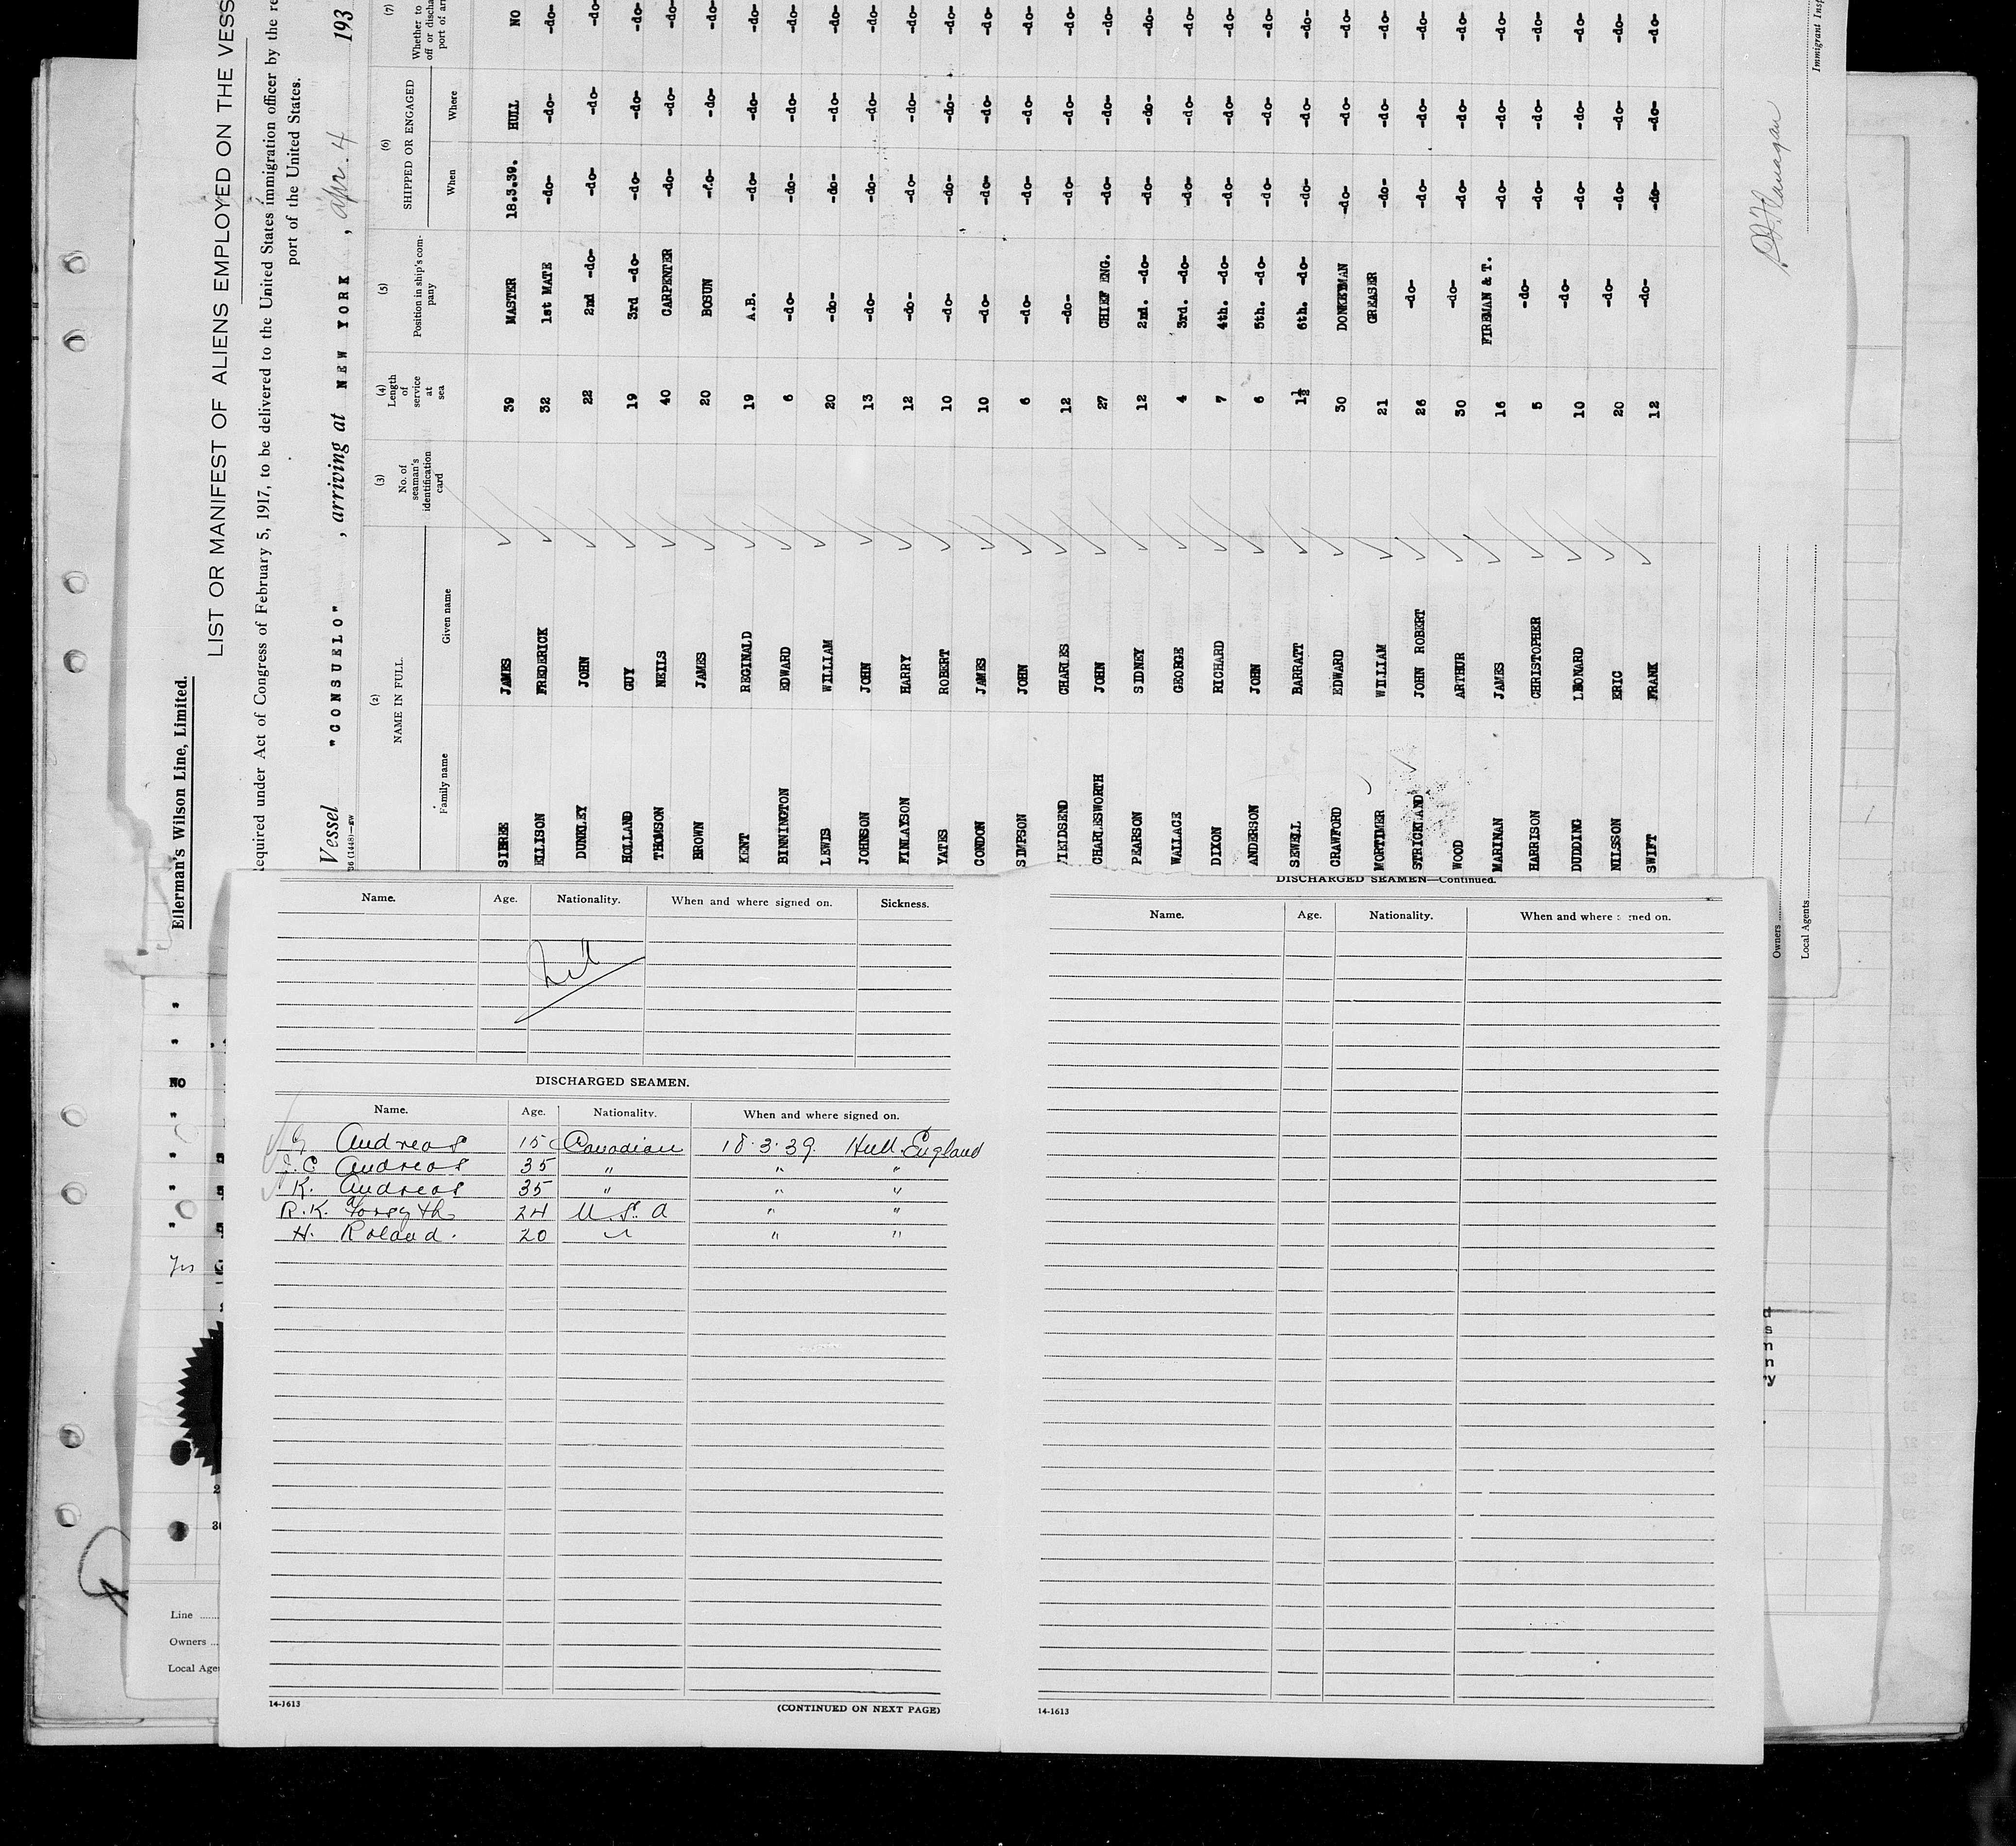 Ellerman's Wilson Line, Limited.
LIST OR MANIFEST OF ALIENS EMPLOYED ON THE VESS
equired under Act of Congress of February 5, 1917, to be delivered to the United States immigration officer by the re
port of the United States.
Vessel "CONSUELO" , arriving at NEW YORK , Apr. 4 193
(2) NAME IN FULL (3) No. of seaman's identification card (4) Length of service at sea (5) Position in ship's company (6) SHIPPED OR ENGAGED (7) Whether to
off or discha
port of ar
Family name Given name When Where
SIBREE JAMES 39 MASTER 18.3.39. HULL NO
ELLISON FREDERICK 32 1st MATE -do- -do- -do-
DUNKLEY JOHN 22 2nd -do- -do- -do- -do-
HOLLAND GUY 19 3rd -do- -do- -do- -do-
THOMSON NEILS 40 CARPENTER -do- -do- -do-
BROWN JAMES 20 BOSUN -do- -do- -do-
KENT REGINALD 19 A.B. -do- -do- -do-
BINNINGTON EDWARD 6 -do- -do- -do- -do-
LEWIS WILLIAM 20 -do- -do- -do- -do-
JOHNSON JOHN 13 -do- -do- -do- -do-
FINLAYSON HARRY 12 -do- -do- -do- -do-
YATES ROBERT 10 -do- -do- -do- -do-
CONDON JAMES 10 -do- -do- -do- -do-
SIMPSON JOHN 6 -do- -do- -do- -do-
FIELDSEND CHARLES 12 -do- -do- -do- -do-
CHARLESWORTH JOHN 27 CHIEF ENG. -do- -do- -do-
PEARSON SIDNEY 12 2nd. -do- -do- -do- -do-
WALLACE GEORGE 4 3rd. -do- -do- -do- -do-
DIXON RICHARD 7 4th. -do- -do- -do- -do-
ANDERSON JOHN 6 5th. -do- -do- -do- -do-
SEWELL BARRATT 1½ 6th. -do- -do- -do- -do-
CRAWFORD EDWARD 30 DONKEYMAN -do- -do- -do-
MORTIMER WILLIAM 21 GREASER -do- -do- -do-
STRICKLAND JOHN ROBERT 26 -do- -do- -do- -do-
WOOD ARTHUR 30 -do- -do- -do- -do-
MARINAN JAMES 16 FIREMAN & T. -do- -do- -do-
HARRISON CHRISTOPHER 5 -do- -do- -do- -do-
DUDDING LEONARD 10 -do- -do- -do- -do-
NILSSON ERIC 20 -do- -do- -do- -do-
SWIFT FRANK 12 -do- -do- -do- -do-
Owners
Local Agents
Immigrant Insp
Name. Age. Nationality. When and where signed on. Sickness.
Nil
DISCHARGED SEAMEN.
Name. Age. Nationality. When and where signed on.
G Andreas 15 Canadian 18.3.39. Hull England
Andreas 35 " " "
K. Andreas 35 " " "
R.K. Forsyth 24 U.S.A " "
H. Roland. 20 " " "
14-1613 (CONTINUED ON NEXT PAGE)
DISCHARGED SEAMEN—Continued.
Name. Age. Nationality. When and where ned on.
14-1613
NO
Yes
Line
Owners
Local Age